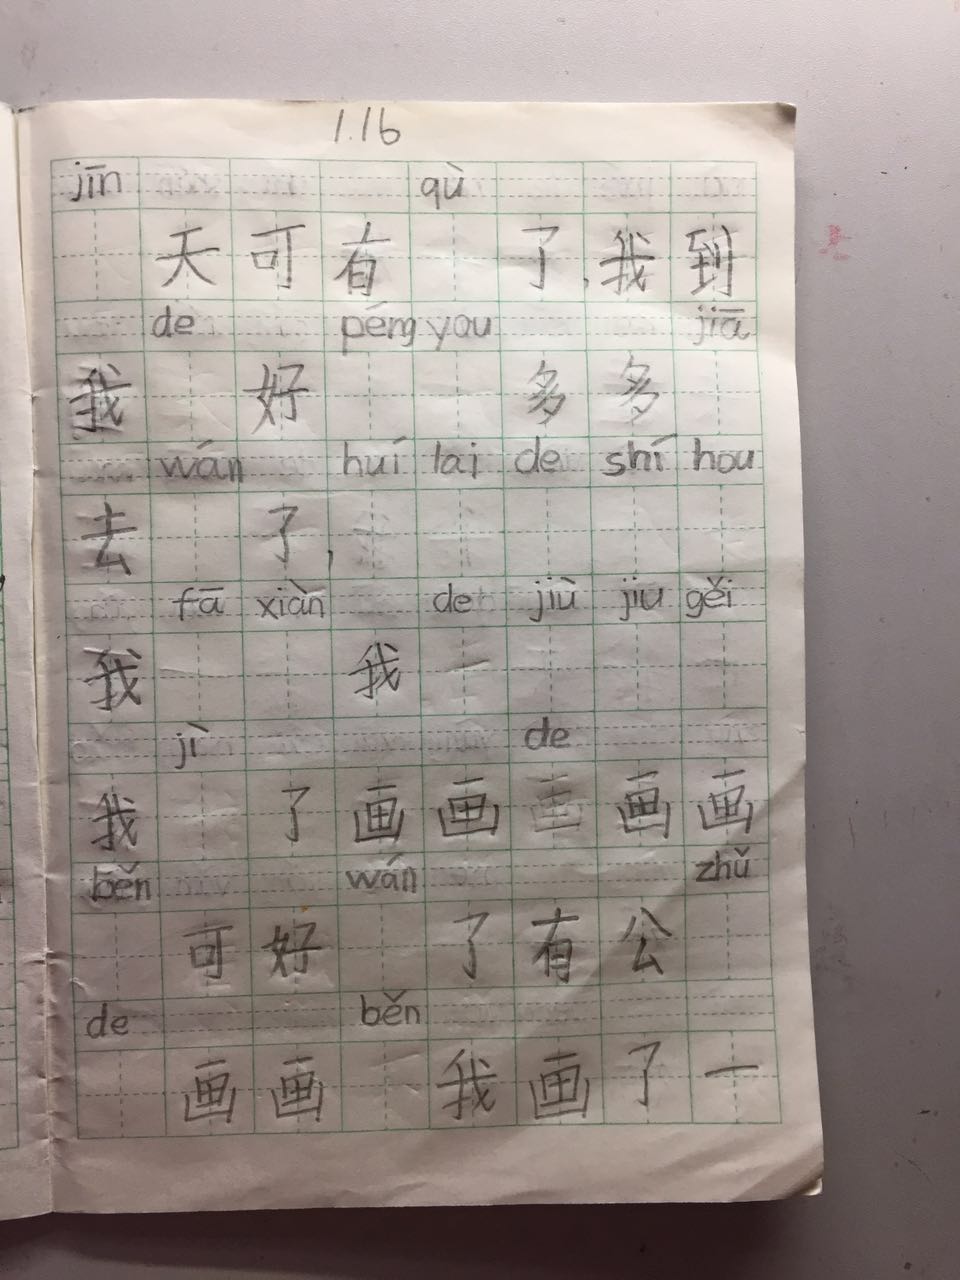 1.16
jīn qù
天可有 了,我到
de péng you jiā
我 好 多多
wán huí lai de shí hou
去 了,
fā xiàn de jiù jiu gěi
我 我
jì de
我 了画画 画画
běn wán zhǔ
可好 了有公
de běn
画画 我画了一